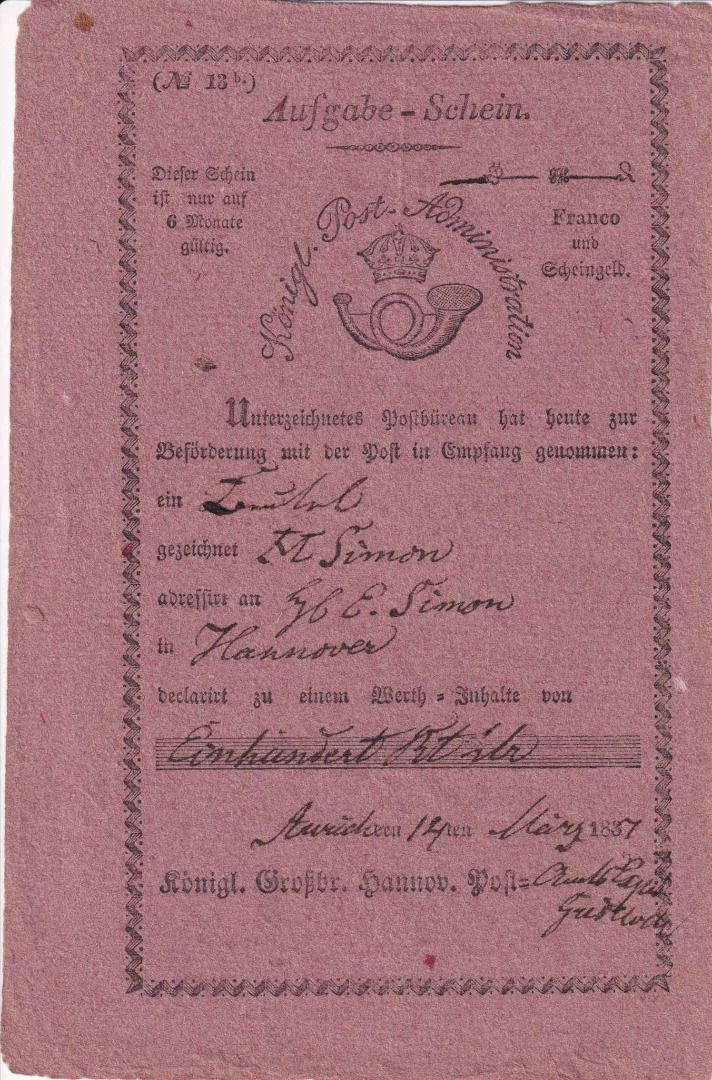 (№ 13 b.)
Aufgabe-Schein.
Dieser Schein
ist nur auf
6 Monate
gültig.
Königl. Post-Administration
Franco
und
Scheingeld.
Unterzeichnetes Postbüreau hat heute zur
Beförderung mit der Post in Empfang genommen:
ein Beutel
gezeichnet Simon
adressirt an E. Simon
in Hannover
declarirt zu einem Werth-Inhalte von
Einhundert
Aurich den 14ten März 1837
Königl. Großbr. Hannov. Post-